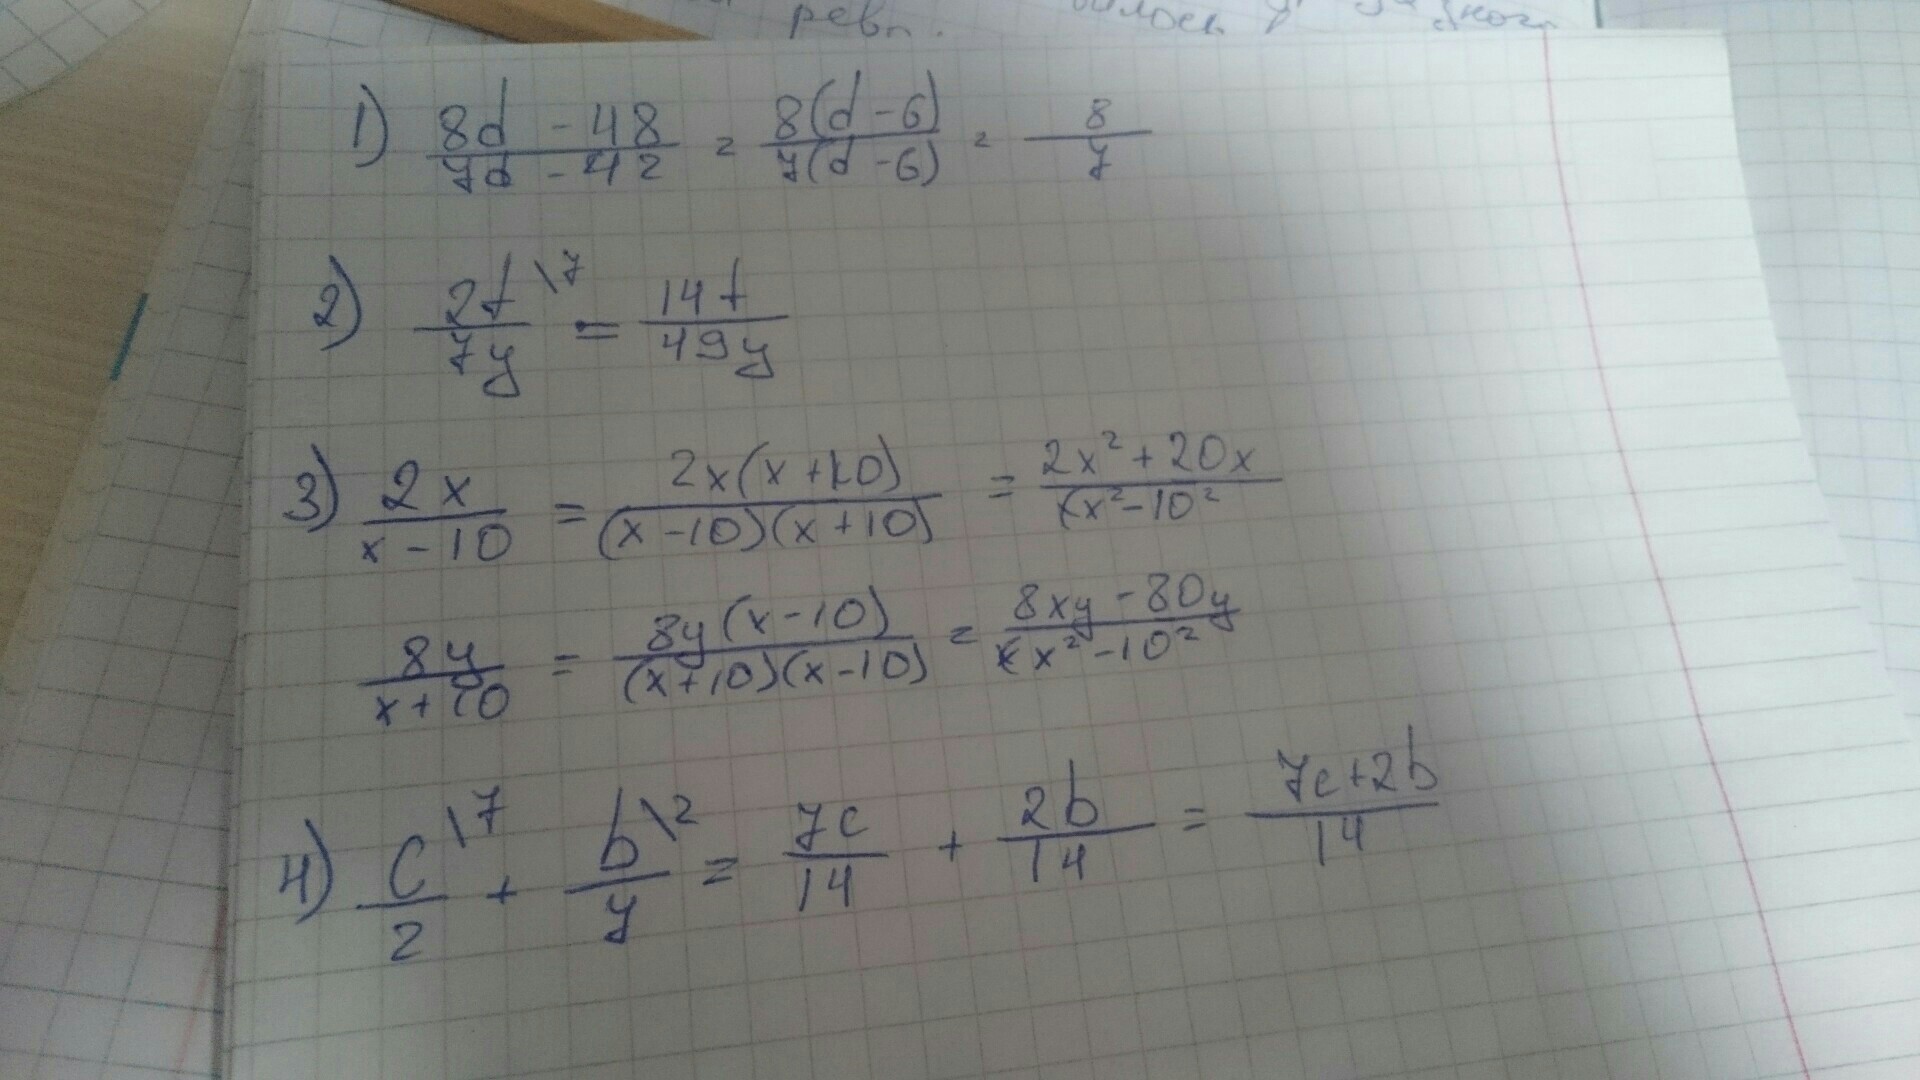 ревл.
1) (8d - 48)/(7d - 42) = 8(d - 6)/7(d - 6) = 8/7
2) 2t\7/7y = 14t/49y
3) 2x/(x - 10) = 2x(x + 10)/(x - 10)(x + 10) = (2x² + 20x)/(x² - 10²
8y/(x + 10) = 8y(x - 10)/(x + 10)(x - 10) = (8xy - 80y)/(x² - 10²
4) c\7/2 + b\2/7 = 7c/14 + 2b/14 = (7c + 2b)/14